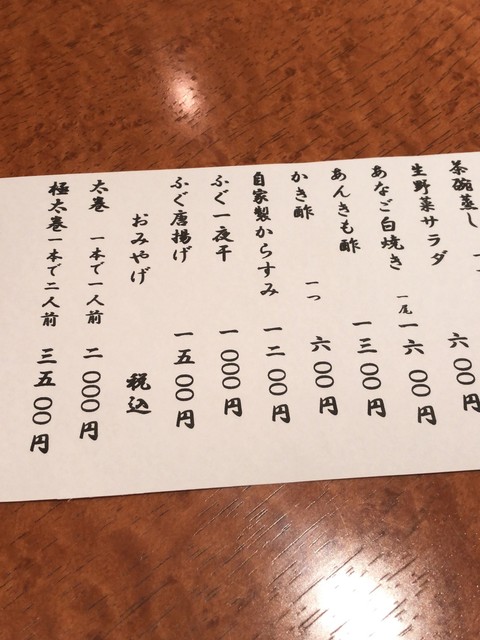 茶碗蒸し
生野菜サラダ 六〇〇円
あなご白焼き 一尾 一六〇〇円
あんきも酢 一三〇〇円
かき酢 一つ 六〇〇円
自家製からすみ 一二〇〇円
ふぐ一夜干 一〇〇〇円
ふぐ唐揚げ 一五〇〇円
おみやげ 税込
太巻 一本で一人前 二〇〇〇円
極太巻 一本で二人前 三五〇〇円